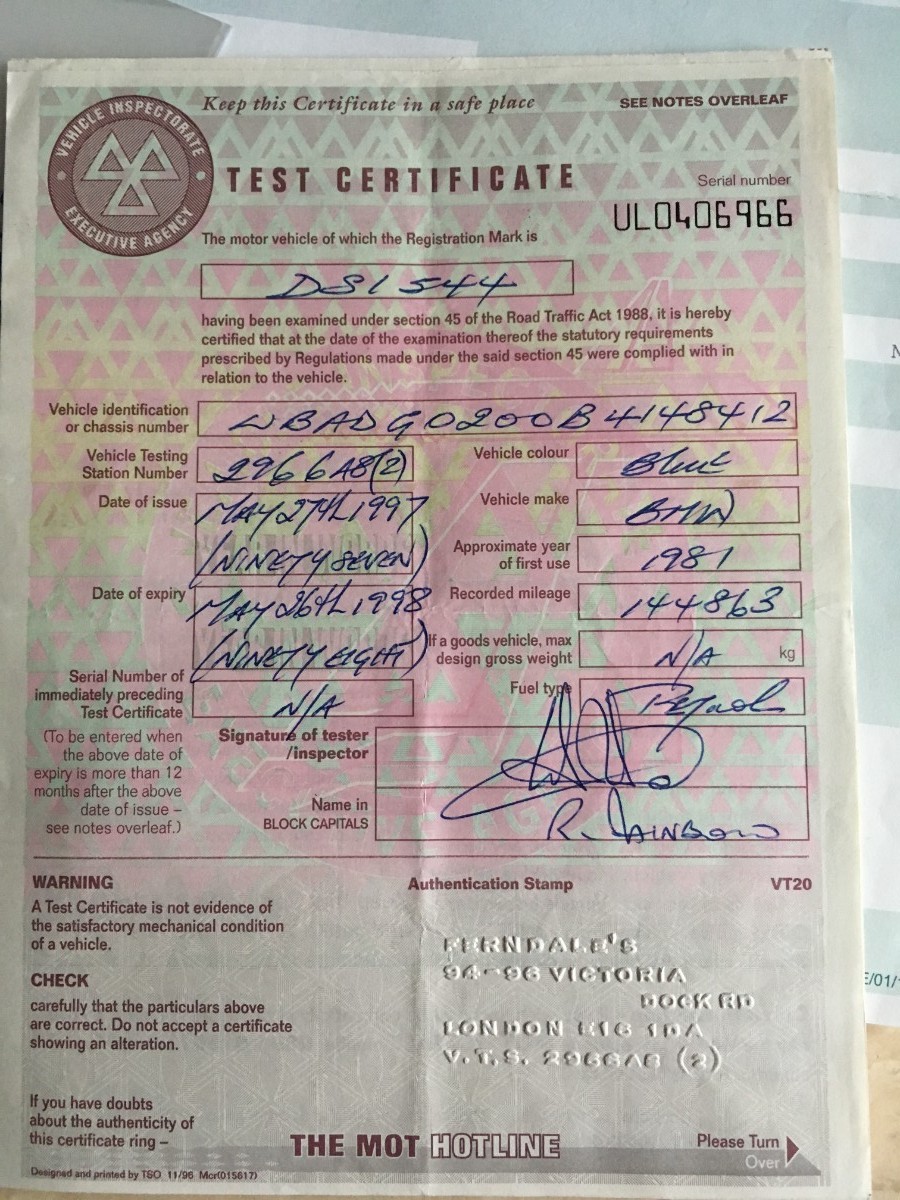 VEHICLE INSPECTORATE
EXECUTIVE AGENCY
Keep this Certificate in a safe place
SEE NOTES OVERLEAF
TEST CERTIFICATE
Serial number
UL0406966
The motor vehicle of which the Registration Mark is
DSI 544
having been examined under section 45 of the Road Traffic Act 1988, it is hereby
certified that at the date of the examination thereof the statutory requirements
prescribed by Regulations made under the said section 45 were complied with in
relation to the vehicle.
Vehicle identification
or chassis number
WBADG0200B4148412
Vehicle Testing
Station Number
2966A8(2)
Vehicle colour
Blue
Date of issue
MAY 27TH 1997
(NINETY SEVEN)
Vehicle make
BMW
Approximate year
of first use
1981
Date of expiry
MAY 26th 1998
(NINETY EIGHT)
Recorded mileage
144863
If a goods vehicle, max
design gross weight
N/A
kg
Serial Number of
immediately preceding
Test Certificate
N/A
Fuel type
Petrol
(To be entered when
the above date of
expiry is more than 12
months after the above
date of issue –
see notes overleaf.)
Signature of tester
/inspector
Name in
BLOCK CAPITALS
R. RAINBOW
WARNING
Authentication Stamp
VT20
A Test Certificate is not evidence of
the satisfactory mechanical condition
of a vehicle.
CHECK
carefully that the particulars above
are correct. Do not accept a certificate
showing an alteration.
FERNDALE'S
94-96 VICTORIA
DOCK RD
LONDON E16 1DA
V.T.S. 2966A8 (2)
If you have doubts
about the authenticity of
this certificate ring –
THE MOT HOTLINE
Please Turn
Over
Designed and printed by TSO 11/96 Mcr(015617)